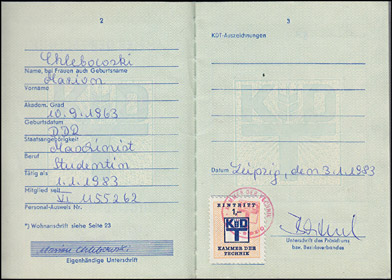 2
Chlebowski
Name, bei Frauen auch Geburtsname
Marion
Vorname
Akadem. Grad
10.9.1963
Geburtsdatum
DDR
Staatsangehörigkeit
Maschinist
Beruf
Studentin
Tätig als
1.1.1983
Mitglied seit
XI 1155262
Personal-Ausweis Nr.
*) Wohnanschrift siehe Seite 23
Marion Chlebowski
Eigenhändige Unterschrift
3
KDT-Auszeichnungen
Datum Leipzig, den 3.1.1983
EINTRITT
1,-
KDT
KAMMER DER
TECHNIK
Unterschrift des Präsidiums
bzw. Bezirksverbandes